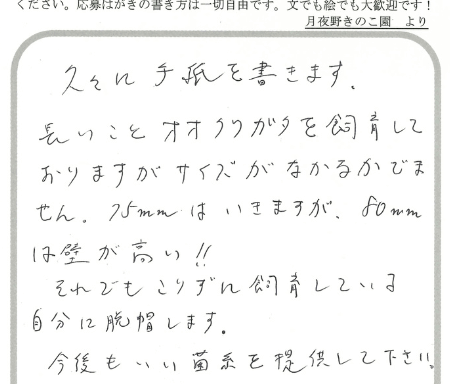 ください。応募はがきの書き方は一切自由です。文でも絵でも大歓迎です！
月夜野きのこ園　より
久々に手紙を書きます。
長いことオオクワガタを飼育して
おりますがサイズがなかなかでま
せん。75mmはいきますが、80mm
は壁が高い!!
それでもこりずに飼育している
自分に脱帽します。
今後もいい菌糸を提供して下さい。